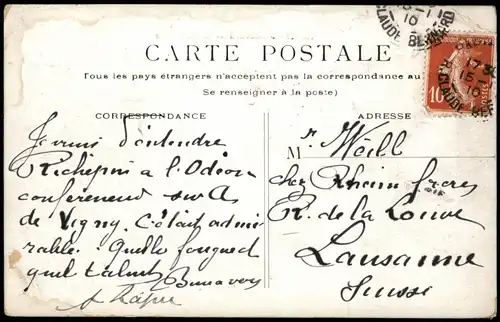 CARTE POSTALE
Tous les pays étrangers n'acceptent pas la correspondance au
Se renseigner à la poste)
CORRESPONDANCE
ADRESSE
Je viens d'entendre
Richepin à l'Odéon
conférencer sur A
de Vigny. C'était admi
rable. Quelle fougue et
quel talent
Mr Weill
chez Rheim frères
R. de la Louve
Lausanne
Suisse
10
R. CLAUDE BERNARD